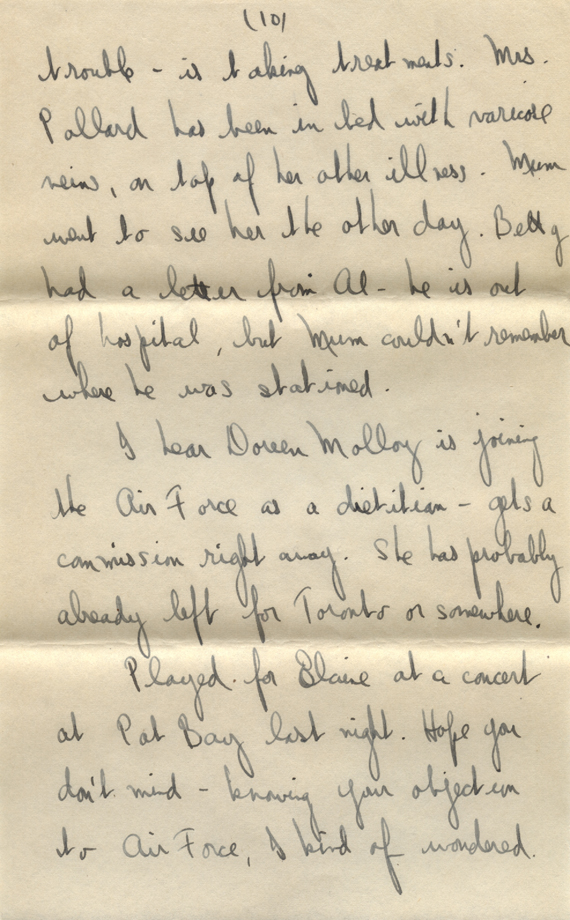 (10)
trouble - is taking treatments. Mrs.
Pollard has been in bed with varicose
veins, on top of her other illness. Mum
went to see her the other day. Betty
had a letter from Al - he is out
of hospital, but Mum couldn't remember
where he was stationed.
I hear Doreen Molloy is joining
the Air Force as a dietitian - gets a
commission right away. She has probably
already left for Toronto or somewhere.
Played for Blaine at a concert
at Pat Bay last night. Hope you
don't mind - knowing your objection
to Air Force, I kind of wondered.